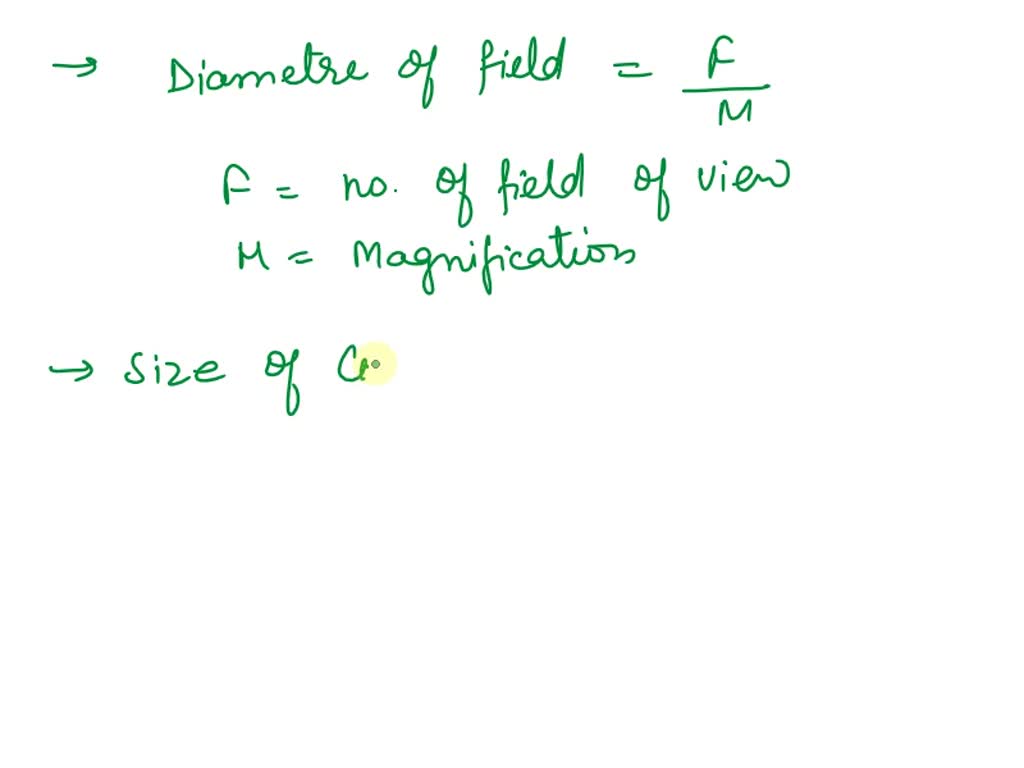 → Diametre of field = F / M
F = no. of field of view
M = Magnification
→ Size of